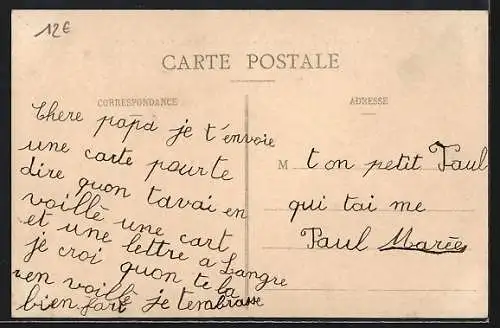 12€
CARTE POSTALE
CORRESPONDANCE
ADRESSE
Chere papa je t'envoie
une carte pourte
dire quon tavai en
voillé une cart
et une lettre a Langre
je croi quon te la
ven voillé
bien fort je tembrasse
M ton petit Paul
qui tai me
Paul Marée